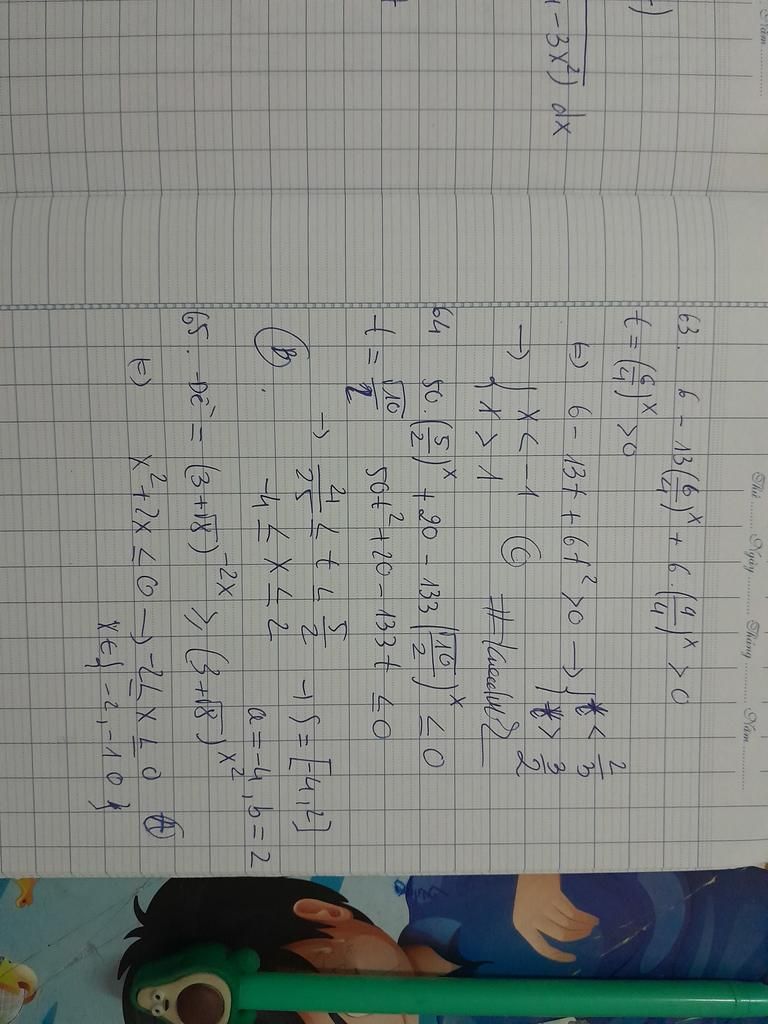 Thứ ........ Ngày ........ Tháng ........ Năm ........
Năm ........
- 3x²) dx
63. 6 - 13(6/4)^x + 6.(9/4)^x > 0
t = (6/4)^x > 0
⇔ 6 - 13t + 6t² > 0 → { t < 2/3
t > 3/2
→ { x < -1
x > 1 Ⓒ
64 50.(5/2)^x + 20 - 133(√10/2)^x ≤ 0
t = √10/2 50t² + 20 - 133t ≤ 0
→ 4/25 ≤ t ≤ 5/2 → S = [-4, 2]
Ⓑ . -4 ≤ x ≤ 2 a = -4, b = 2
65. Đề = (3+√8)^-2x ≥ (3+√8)^x²
⇔ x² + 2x ≤ 0 → -2 ≤ x ≤ 0 Ⓐ
x ∈ { -2, -1 0 }